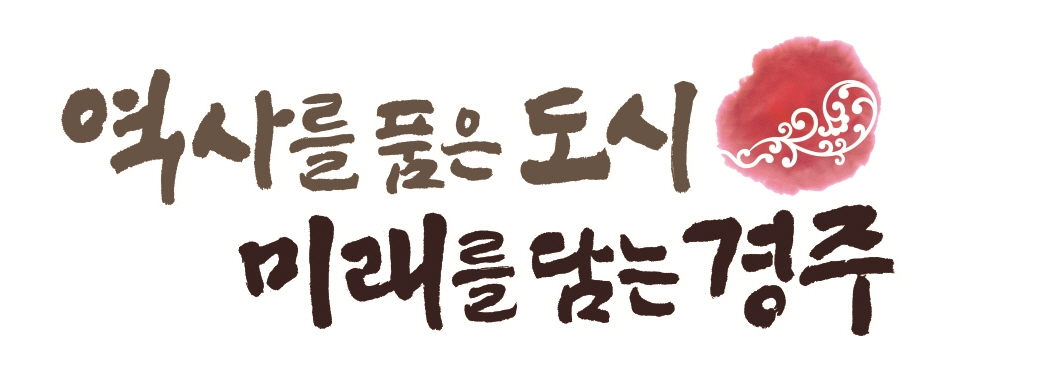 역사를 품은 도시
미래를 담는 경주